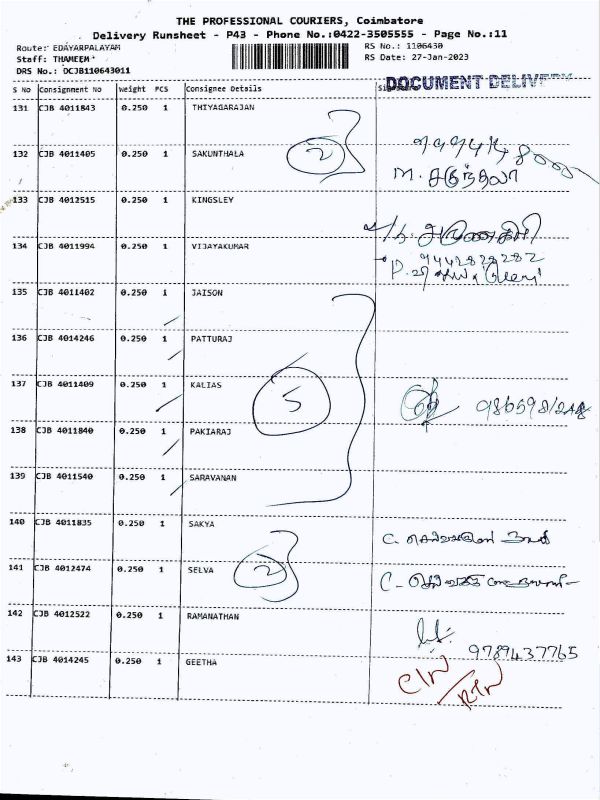 THE PROFESSIONAL COURIERS, Coimbatore
Delivery Runsheet - P43 - Phone No.:0422-3505555 - Page No.:11
Route: EDAYARPALAYAM
Staff: THAMEEM
DRS No.: DCJB110643011
RS No.: 1106430
RS Date: 27-Jan-2023
DOCUMENT DELIVERY
S No Consignment No Weight PCS Consignee Details
131 CJB 4011843 0.250 1 THIYAGARAJAN
132 CJB 4011405 0.250 1 SAKUNTHALA 2
M. சகுந்தலா
133 CJB 4012515 0.250 1 KINGSLEY
134 CJB 4011994 0.250 1 VIJAYAKUMAR
9442828282
135 CJB 4011402 0.250 1 JAISON
136 CJB 4014246 0.250 1 PATTURAJ
137 CJB 4011409 0.250 1 KALIAS 5
138 CJB 4011840 0.250 1 PAKIARAJ
139 CJB 4011540 0.250 1 SARAVANAN
140 CJB 4011835 0.250 1 SAKYA
141 CJB 4012474 0.250 1 SELVA 2
142 CJB 4012522 0.250 1 RAMANATHAN
9789437765
143 CJB 4014245 0.250 1 GEETHA